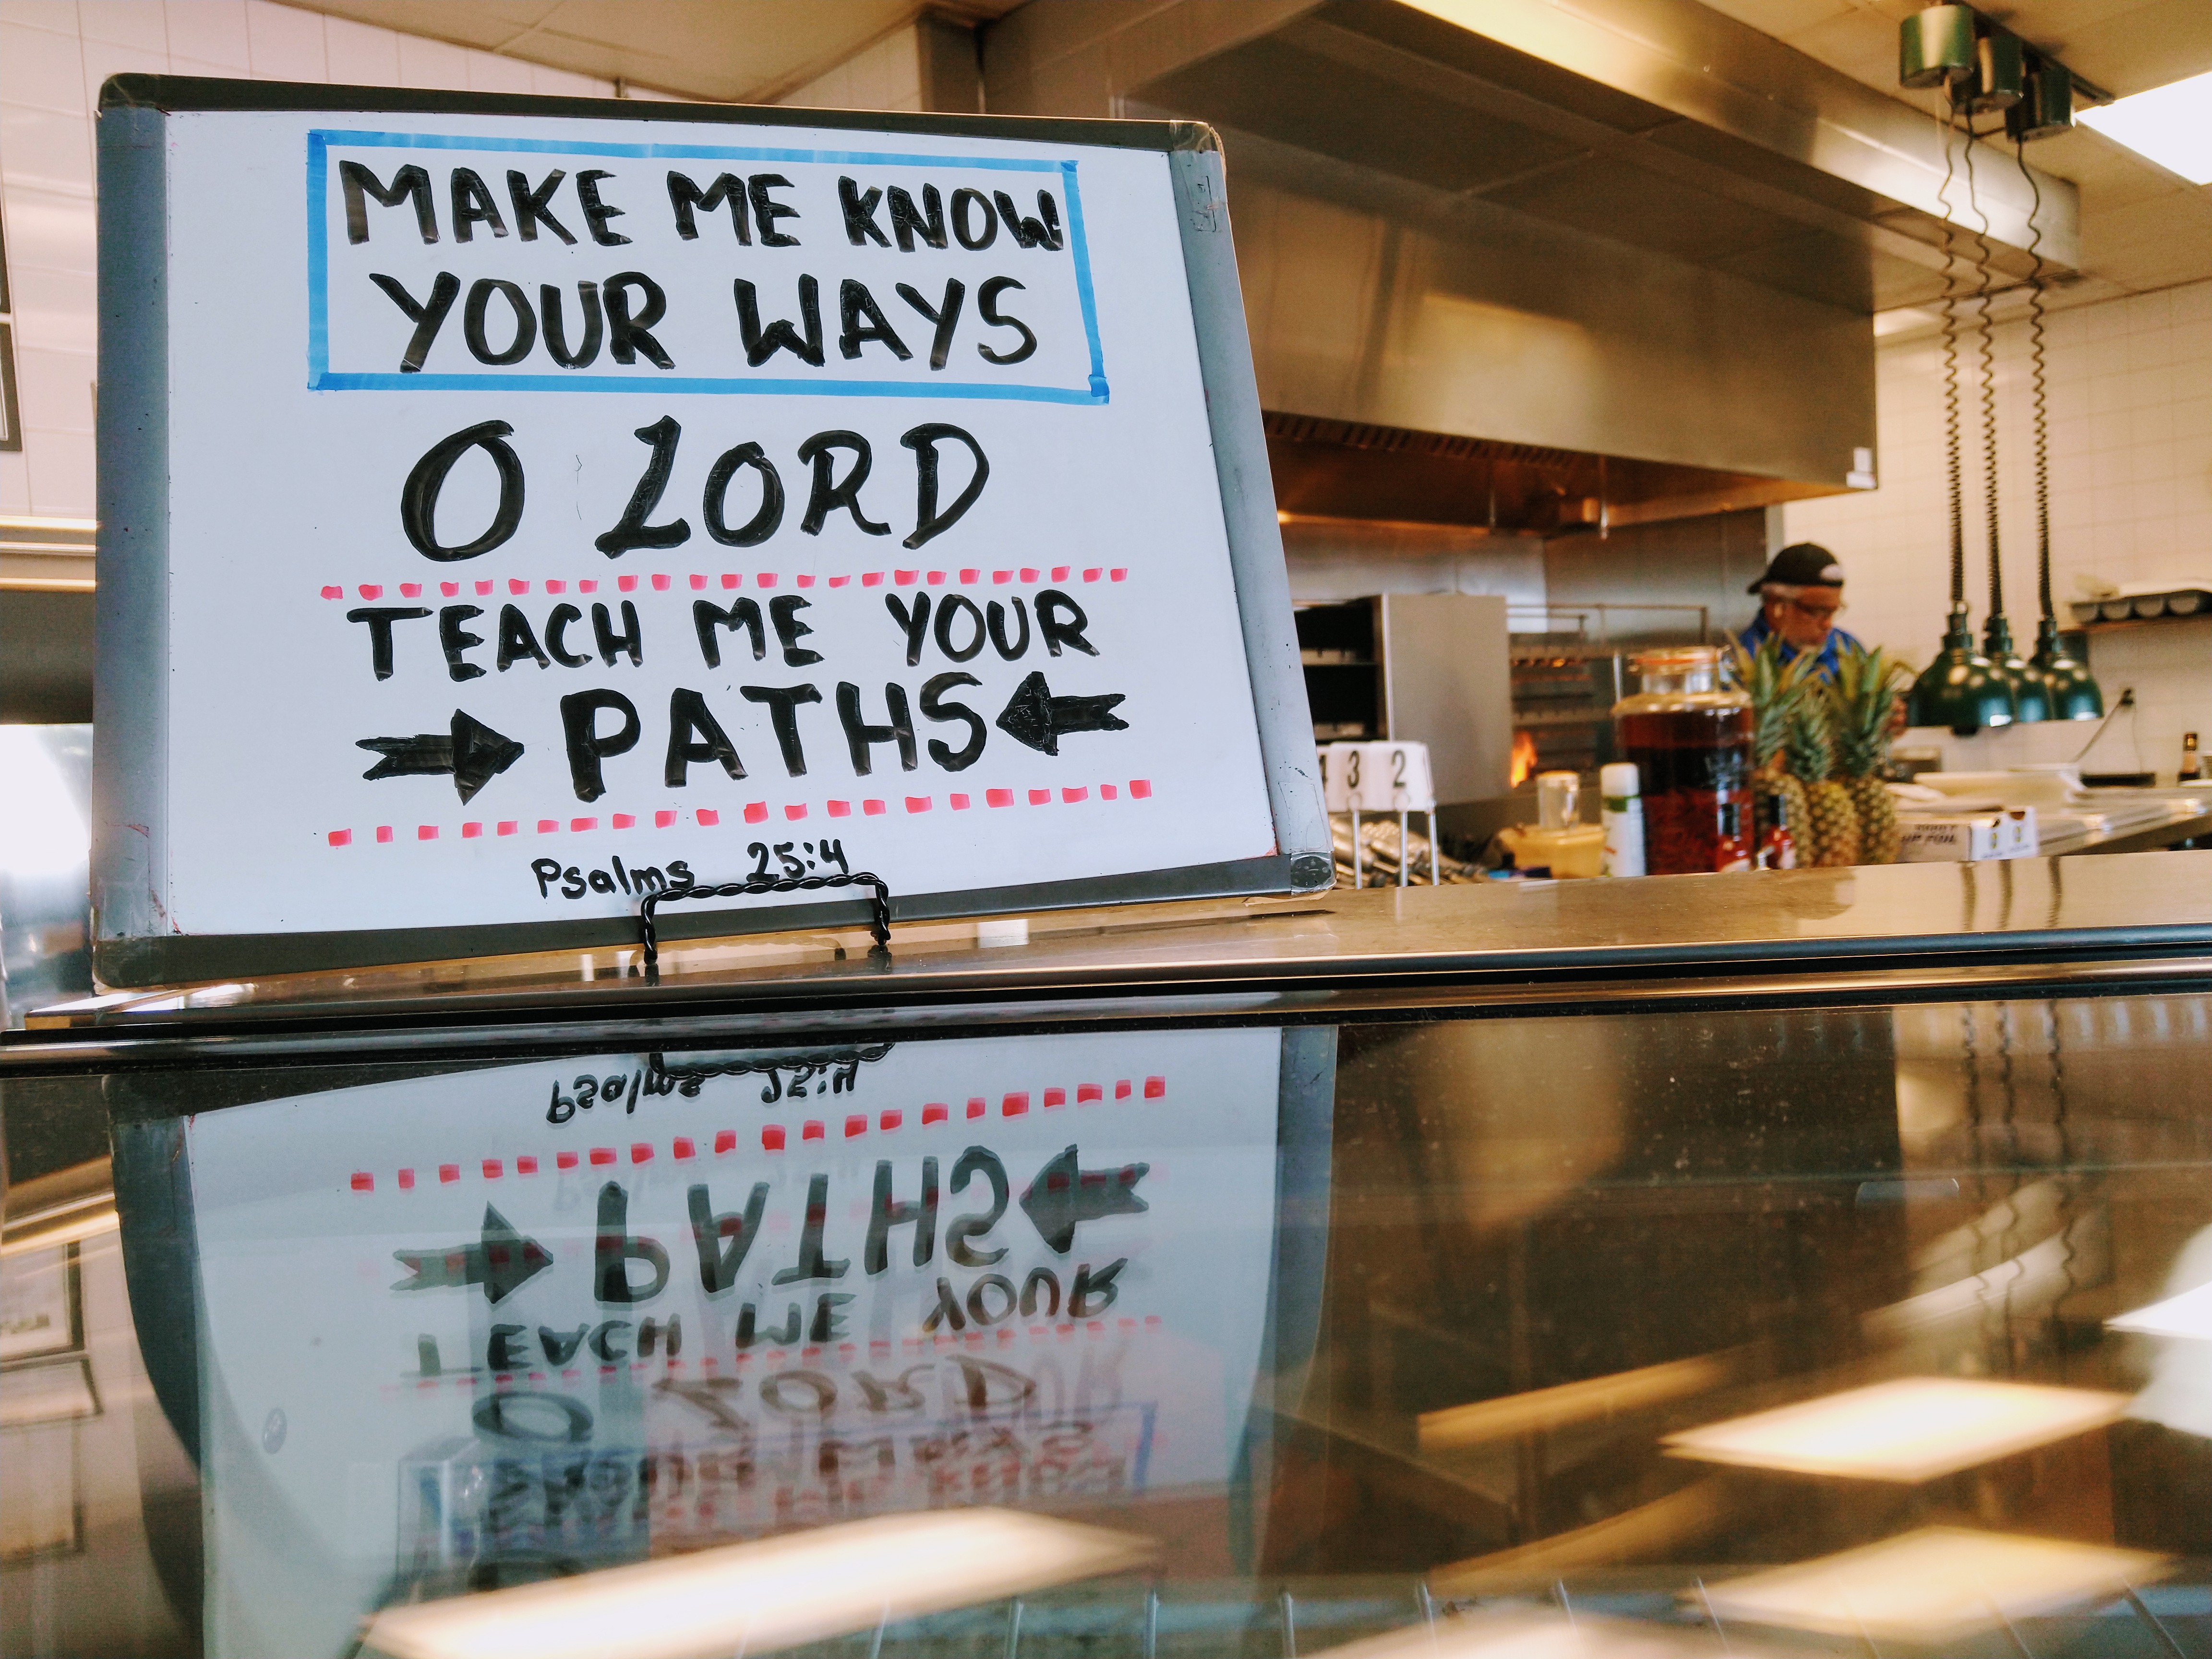 MAKE ME KNOW
YOUR WAYS
O LORD
TEACH ME YOUR
PATHS
Psalms 25:4
3 2